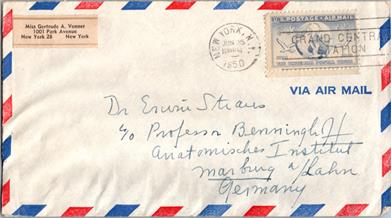 Miss Gertrude A. Vanner
1001 Park Avenue
New York 28 New York
NEW YORK, N.Y.
1950
U.S. POSTAGE AIR MAIL
GRAND CENTRAL
STATION
VIA AIR MAIL
Dr Erwin Straus
c/o Professor Benninghoff
Anatomisches Institut
Marburg a/Lahn
Germany